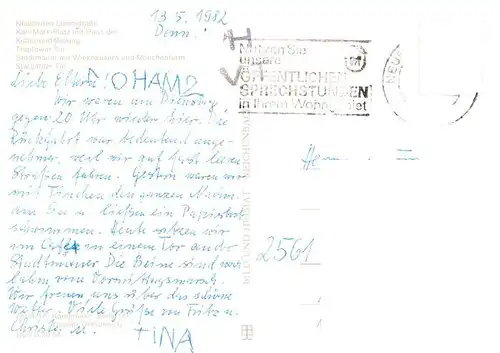 13.5.1982
Neubrandenburg
Karl-Marx-Platz mit Haus der
Kultur und Bildung
Treptower Tor
Stadtmauer mit Wiekhäusern und Mönchenturm
Stargarder Tor
Nutzen Sie
unsere
ÖFFENTLICHEN
SPRECHSTUNDEN
in Ihrem Wohngebiet
Liebe Eltern!
Wir waren am Dienstag
gegen 20 Uhr wieder hier. Die
Rückfahrt war bedeutend ange-
nehmer, weil wir auf fast leeren
Straßen fuhren. Gestern waren wir
mit Tinchen den ganzen Nachm.
am See u. ließen ein Papierboot
schwimmen. Heute sitzen wir
im Café in einem Tor an der
Stadtmauer. Die Beine sind
vom Vormittagsmarsch.
Wir freuen uns über das schöne
Wetter. Viele Grüße von Fritz u.
Christa u. TINA
BILD UND HEIMAT REICHENBACH
2561